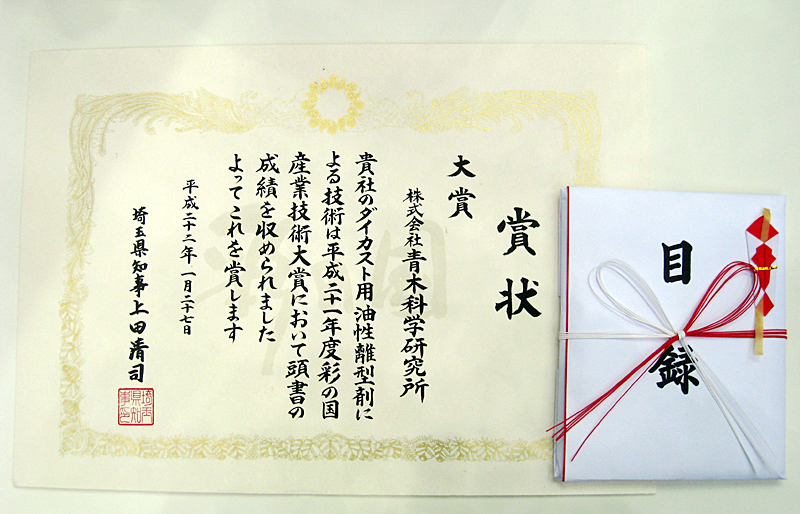 賞状
大賞
株式会社青木科学研究所
貴社のダイカスト用油性離型剤に
よる技術は平成二十一年度彩の国
産業技術大賞において頭書の
成績を収められました
よってこれを賞します
平成二十二年一月二十七日
埼玉県知事上田清司
埼玉
県知
事印
目録